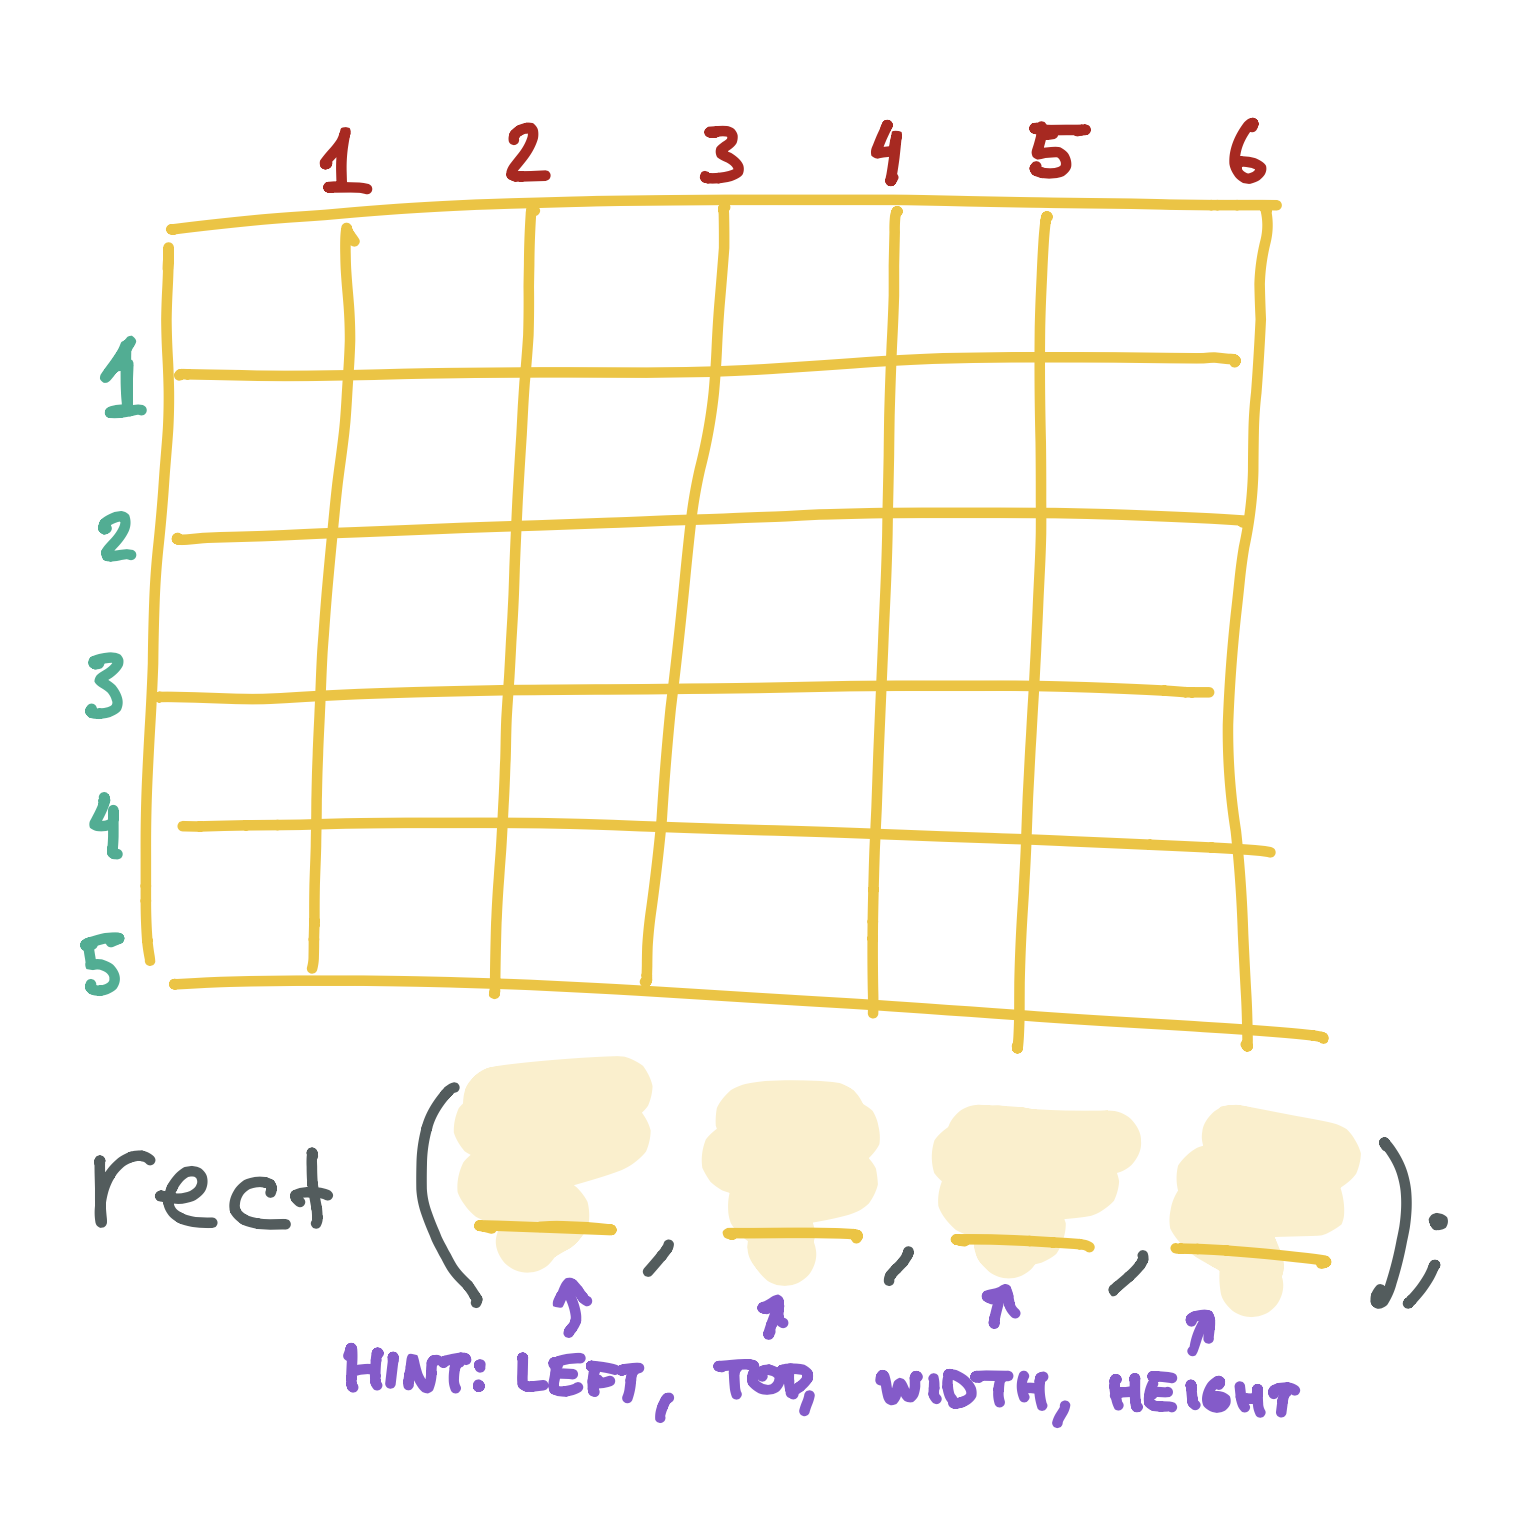 1 2 3 4 5 6
1
2
3
4
5
rect ( , , , );
HINT: LEFT, TOP, WIDTH, HEIGHT